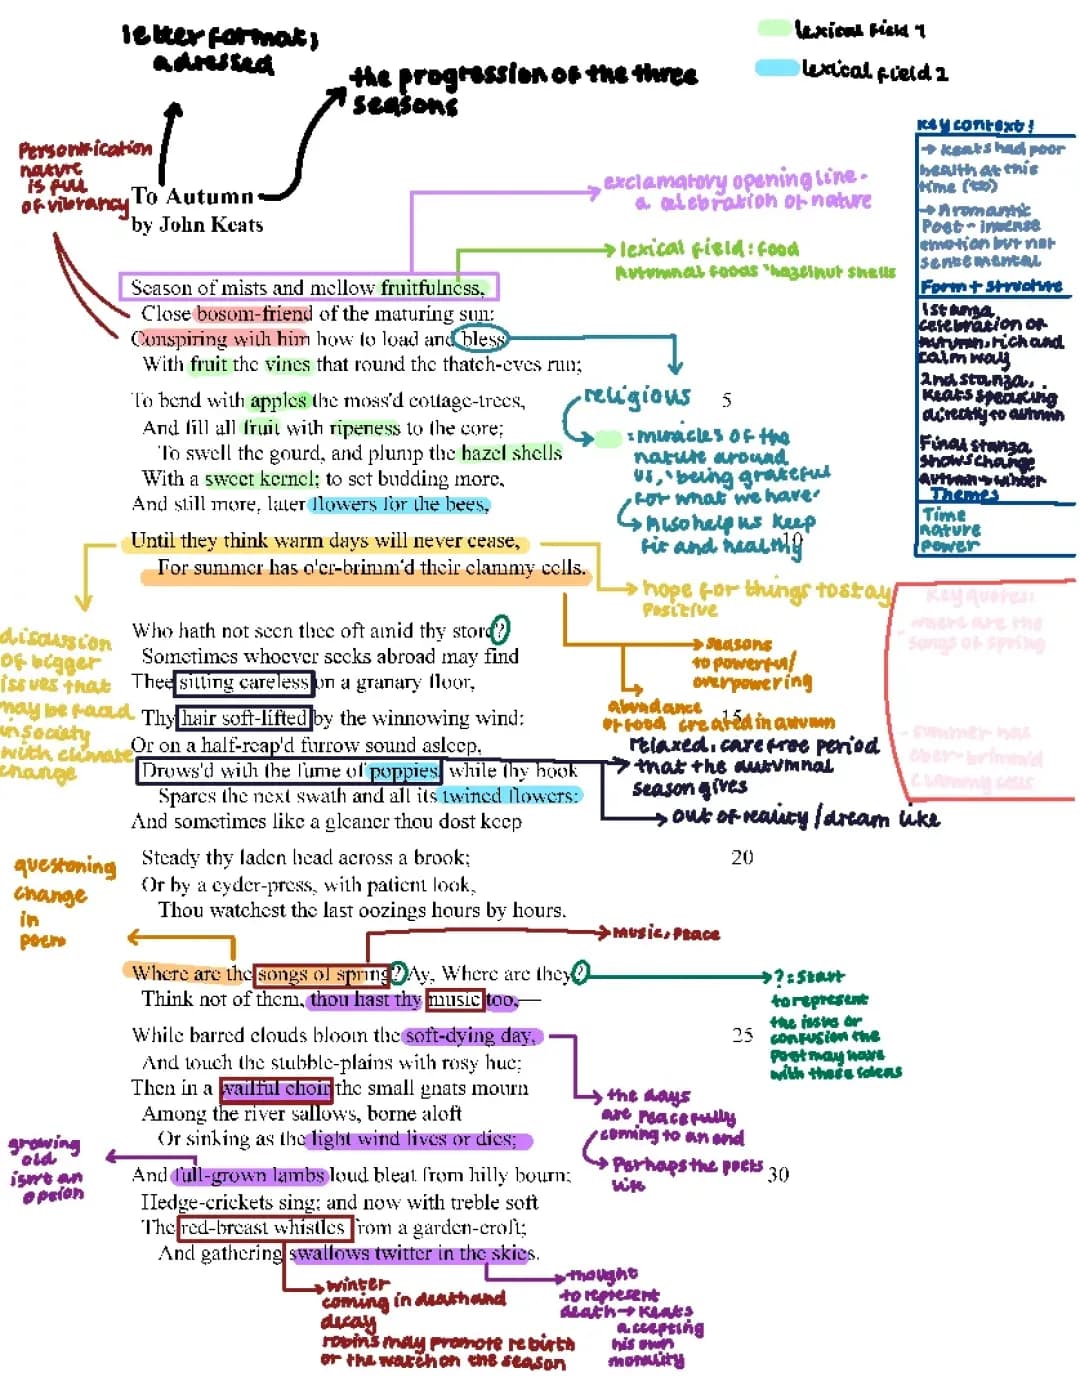 letter format;
adressed
the progression of the three
seasons
lexical field 1
lexical field 2
Personification
nature
is full
of vibrancy
To Autumn
by John Keats
exclamatory opening line -
a celebration of nature
lexical field: food
Autumnal foods 'hazelnut shells
Key context!
→ Keats had poor
health at this
time (tb)
→ A romantic
Poet - intense
emotion but not
sentemental
Form + structure
1 stanza
celebration of
autumn, rich and
calm way
2nd stanza,
Keats speaking
directly to autumn
Final stanza
shows change
autumn → winter
Themes
Time
nature
power
Key quotes:
- where are the
songs of spring
- summer has
o'er-brimm'd
clammy cells
Season of mists and mellow fruitfulness,
Close bosom-friend of the maturing sun;
Conspiring with him how to load and bless
With fruit the vines that round the thatch-eves run;
To bend with apples the moss'd cottage-trees,
5
And fill all fruit with ripeness to the core;
To swell the gourd, and plump the hazel shells
With a sweet kernel; to set budding more,
And still more, later flowers for the bees,
Until they think warm days will never cease,
10
For summer has o'er-brimm'd their clammy cells.
religious
: miracles of the
nature around
us, 'being grateful
for what we have'
Also help us keep
fit and healthy
hope for things to stay
positive
discussion
of bigger
issues that
may be faced
in society
with climate
change
seasons
to powerful/
overpowering
abundance
of food created in autumn
Who hath not seen thee oft amid thy store?
Sometimes whoever seeks abroad may find
Thee sitting careless on a granary floor,
Thy hair soft-lifted by the winnowing wind;
15
Or on a half-reap'd furrow sound asleep,
Drows'd with the fume of poppies, while thy hook
Spares the next swath and all its twined flowers:
And sometimes like a gleaner thou dost keep
Steady thy laden head across a brook;
20
Or by a cyder-press, with patient look,
Thou watchest the last oozings hours by hours.
relaxed, care free period
that the autumnal
season gives
out of reality / dream like
questoning
change
in
poem
music, peace
Where are the songs of spring? Ay, Where are they?
Think not of them, thou hast thy music too,—
While barred clouds bloom the soft-dying day,
25
And touch the stubble-plains with rosy hue;
Then in a wailful choir the small gnats mourn
Among the river sallows, borne aloft
Or sinking as the light wind lives or dies;
And full-grown lambs loud bleat from hilly bourn;
30
Hedge-crickets sing; and now with treble soft
The red-breast whistles from a garden-croft;
And gathering swallows twitter in the skies.
? : start
to represent
the issue or
confusion the
Poet may have
with these ideas
the days
are peacefully
coming to an end
Perhaps the poets
life
growing
old
isn't an
option
winter
coming in death and
decay
robins may promote rebirth
or the watch on the season
thought
to represent
death → Keats
accepting
his own
morality